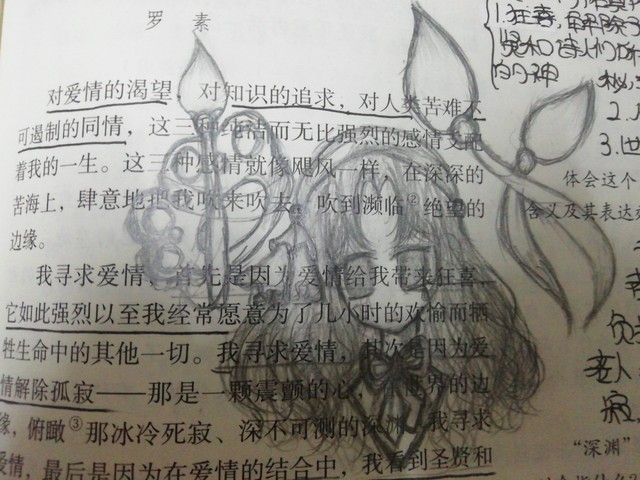 罗 素
对爱情的渴望，对知识的追求，对人类苦难不
可遏制的同情，这三种纯洁而无比强烈的感情支配
着我的一生。这三种感情就像飓风一样，在深深的
苦海上，肆意地把我吹来吹去，吹到濒临②绝望的
边缘。
我寻求爱情，首先是因为爱情给我带来狂喜，
它如此强烈以至我经常愿意为了几小时的欢愉而牺
牲生命中的其他一切。我寻求爱情，其次是因为爱
情解除孤寂——那是一颗震颤的心，在世界的边
缘，俯瞰③那冰冷死寂、深不可测的深渊。我寻求
爱情，最后是因为在爱情的结合中，我看到圣贤和
1.狂喜，解除
贤和诗人们所
的
2.
3.世
体会这个
含义及其表达
寂，
“深渊”